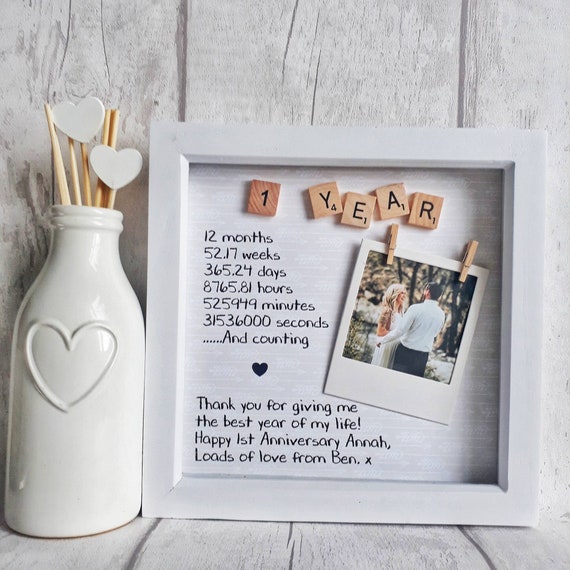 1 YEAR
12 months
52.17 weeks
365.24 days
8765.81 hours
525949 minutes
31536000 seconds
......And counting
Thank you for giving me
the best year of my life!
Happy 1st Anniversary Annah,
Loads of love from Ben. x